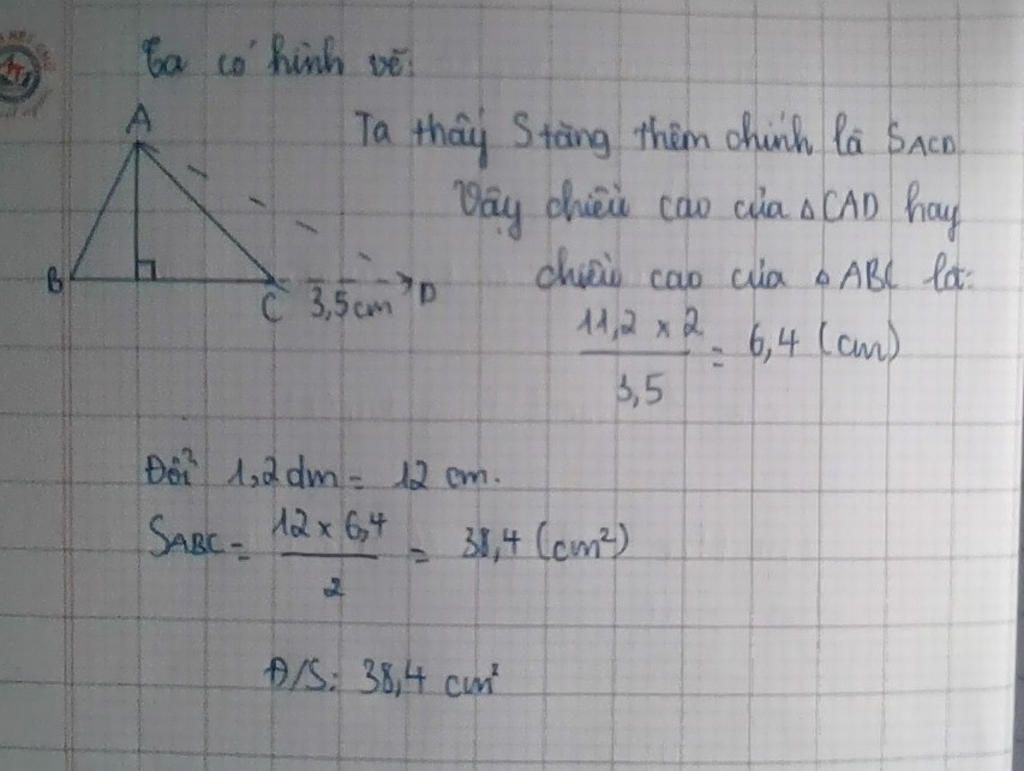 Ta có hình vẽ:
A
Ta thấy S tăng thêm chính là SACD
Vậy chiều cao của △CAD hay
B
C 3,5cm D
chiều cao của △ABC là:
11,2 x 2
3,5
= 6,4 (cm)
Đổi 1,2dm = 12 cm.
SABC = 12 x 6,4
2
= 38,4 (cm²)
Đ/S: 38,4 cm²